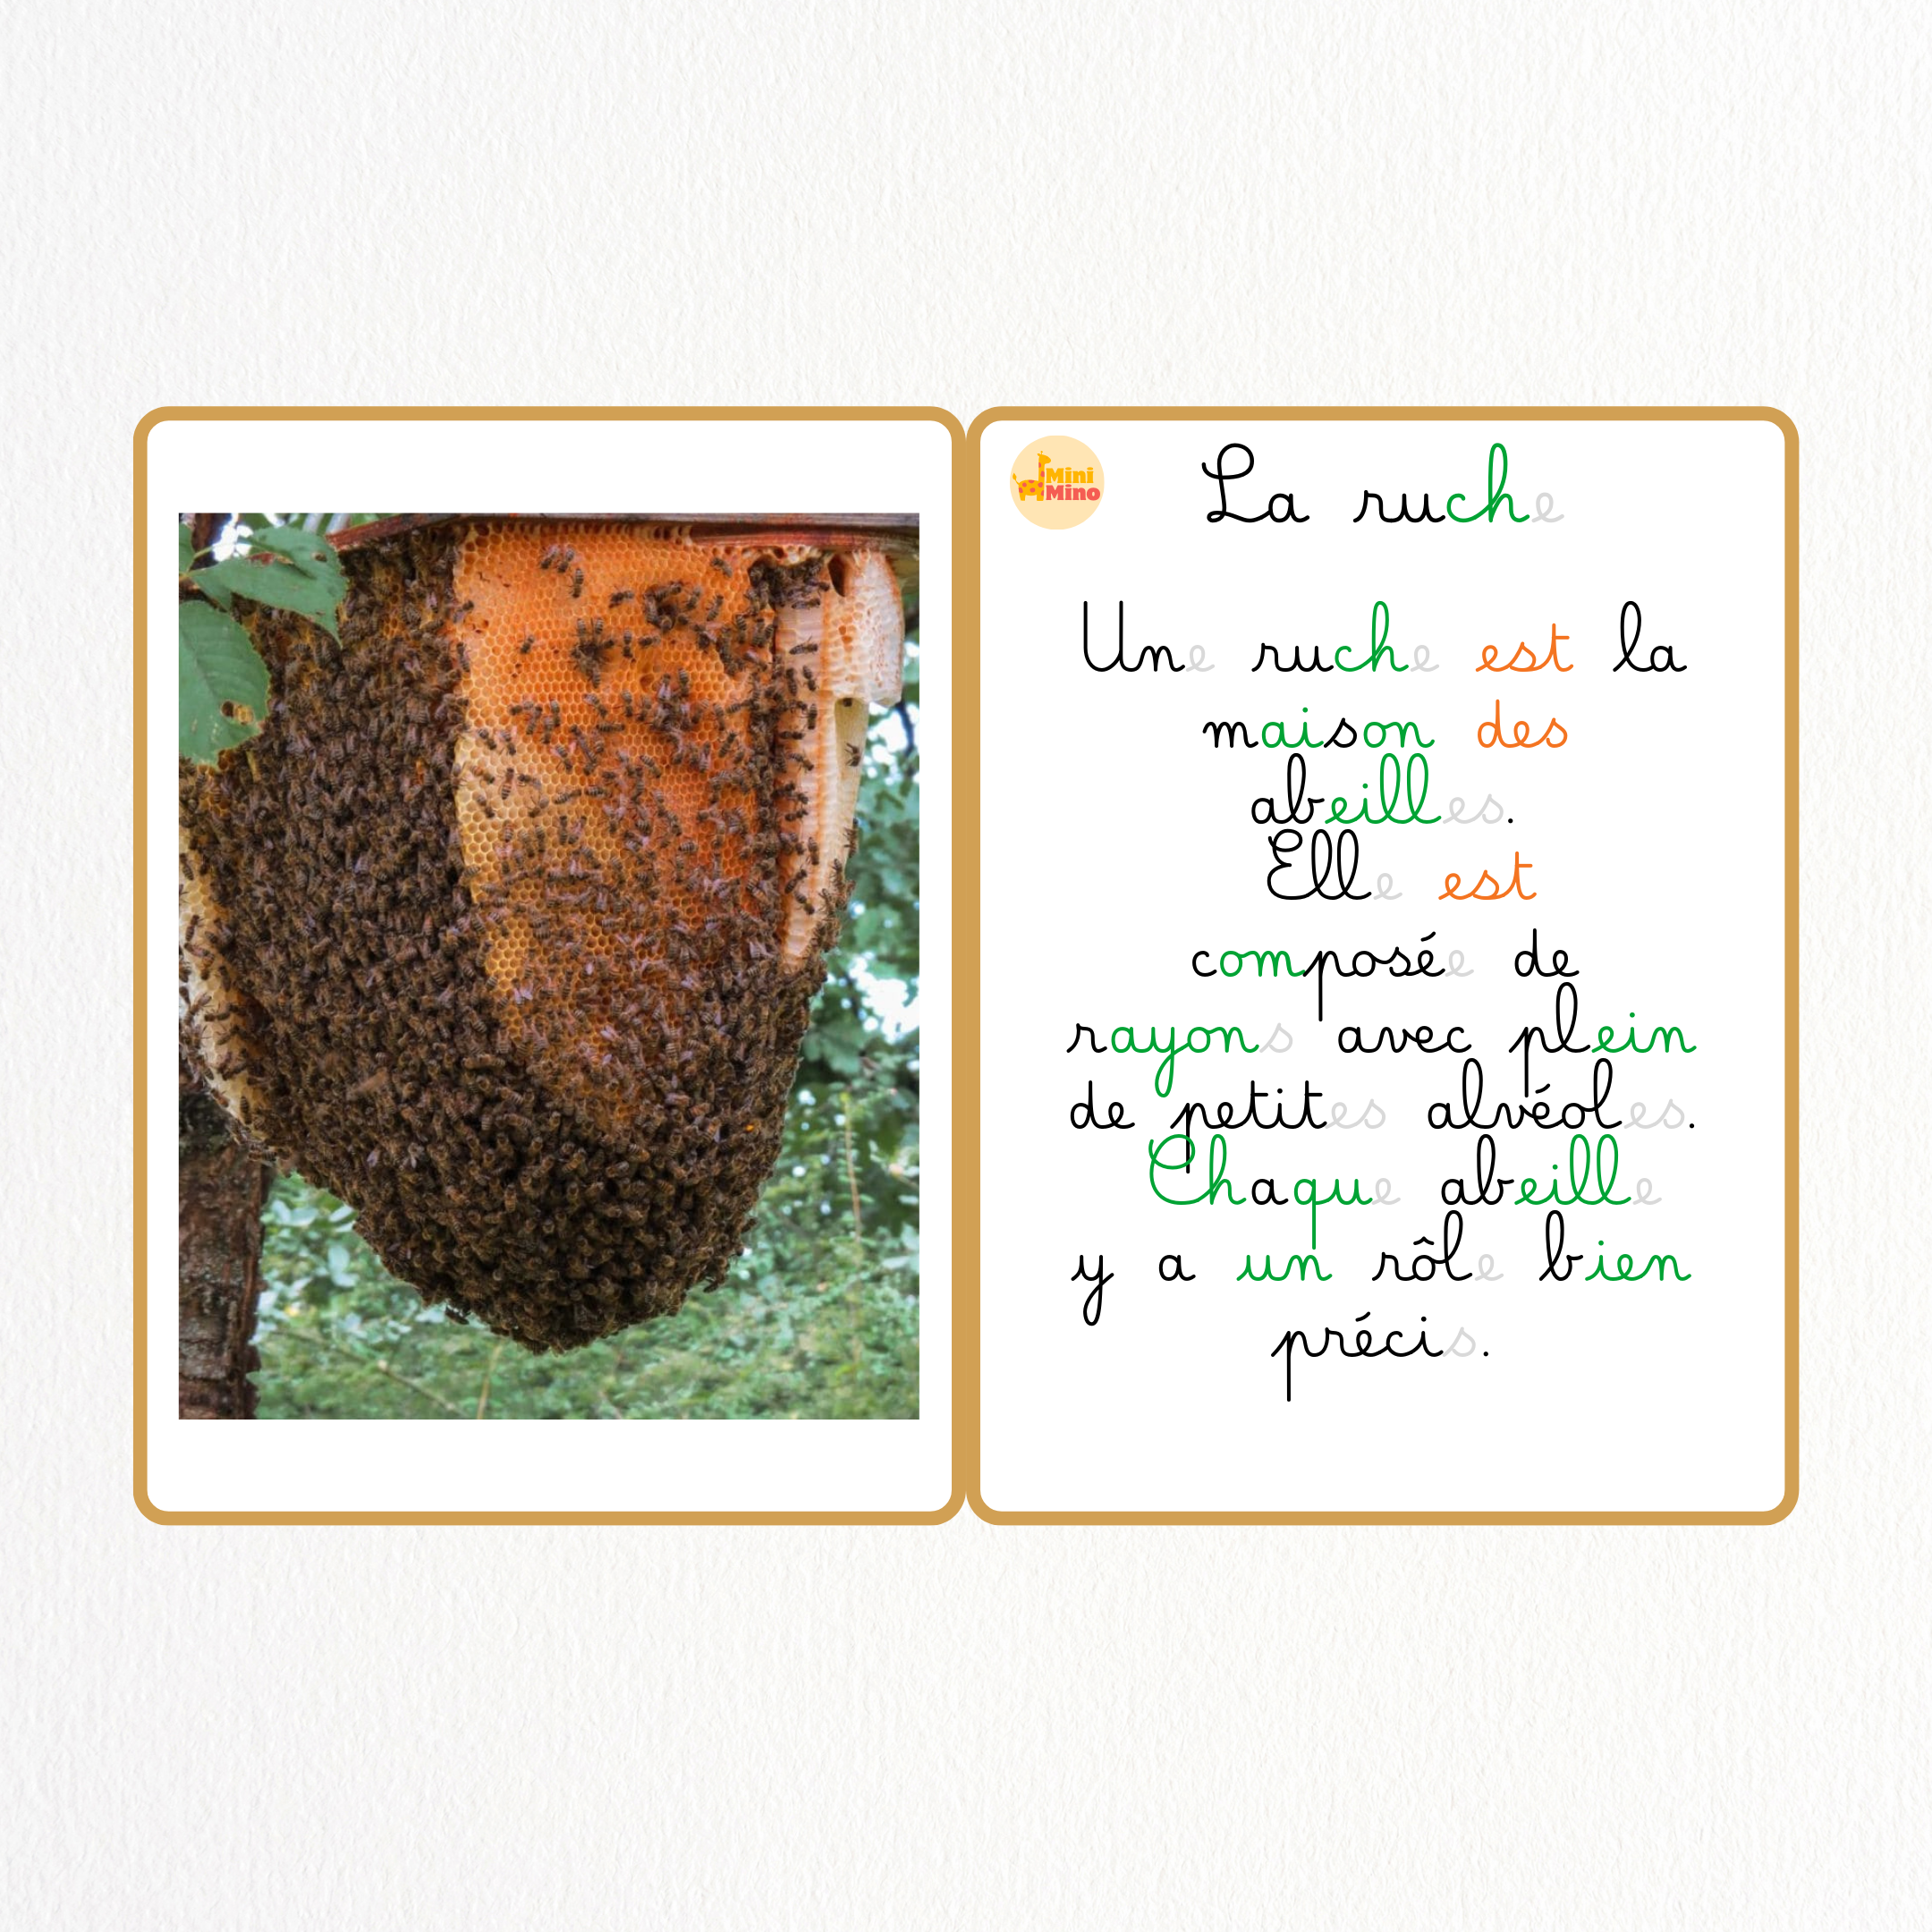 Mini
Mino
La ruche
Une ruche est la
maison des
abeilles.
Elle est
composée de
rayons avec plein
de petites alvéoles.
Chaque abeille
y a un rôle bien
précis.